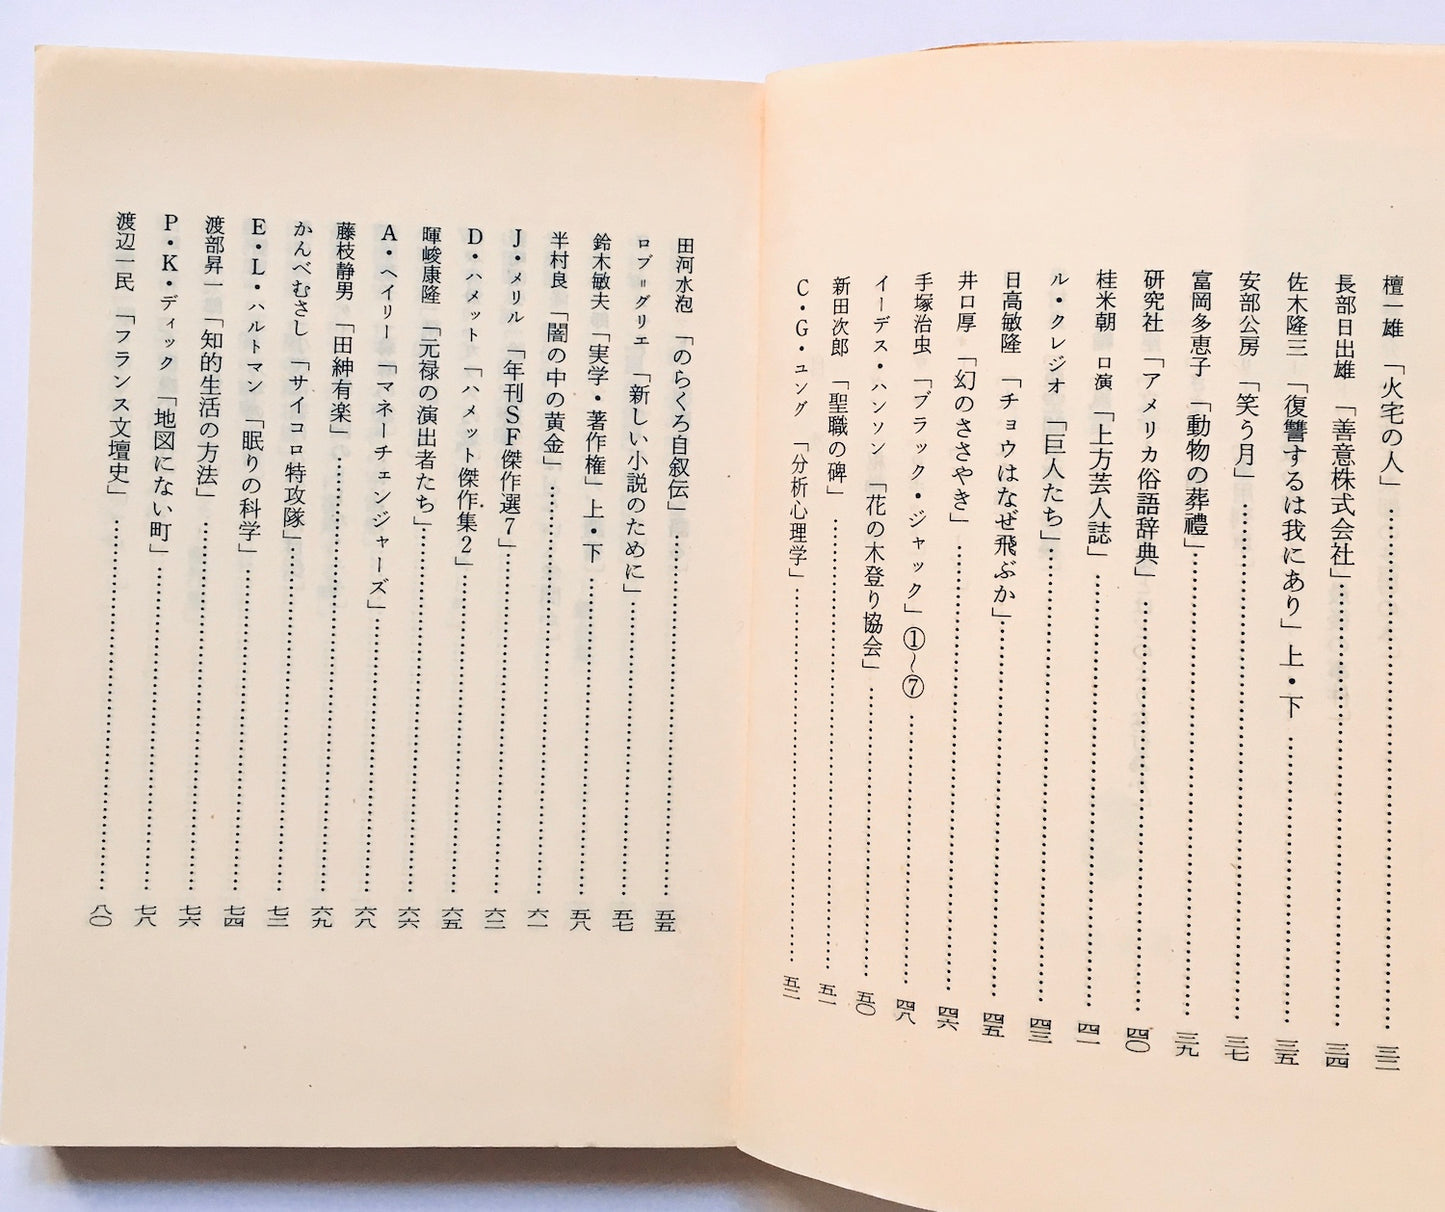 檀一雄「火宅の人」……三二
長部日出雄「善意株式会社」……三四
佐木隆三「復讐するは我にあり」上・下……三五
安部公房「笑う月」……三七
富岡多恵子「動物の葬禮」……三九
研究社「アメリカ俗語辞典」……四〇
桂米朝 口演「上方芸人誌」……四一
ル・クレジオ「巨人たち」……四三
日高敏隆「チョウはなぜ飛ぶか」……四五
井口厚「幻のささやき」……四六
手塚治虫「ブラック・ジャック」①〜⑦……四八
イーデス・ハンソン「花の木登り協会」……五〇
新田次郎「聖職の碑」……五一
C・G・ユング「分析心理学」……五二
田河水泡「のらくろ自叙伝」……五五
ロブ＝グリエ「新しい小説のために」……五七
鈴木敏夫「実学・著作権」上・下……五八
半村良「闇の中の黄金」……六一
J・メリル「年刊SF傑作選7」……六二
D・ハメット「ハメット傑作集2」……六五
暉峻康隆「元禄の演出者たち」……六六
A・ヘイリー「マネーチェンジャーズ」……六八
藤枝静男「田紳有楽」……六九
かんべむさし「サイコロ特攻隊」……七三
E・L・ハルトマン「眠りの科学」……七四
渡部昇一「知的生活の方法」……七六
P・K・ディック「地図にない町」……七八
渡辺一民「フランス文壇史」……八〇